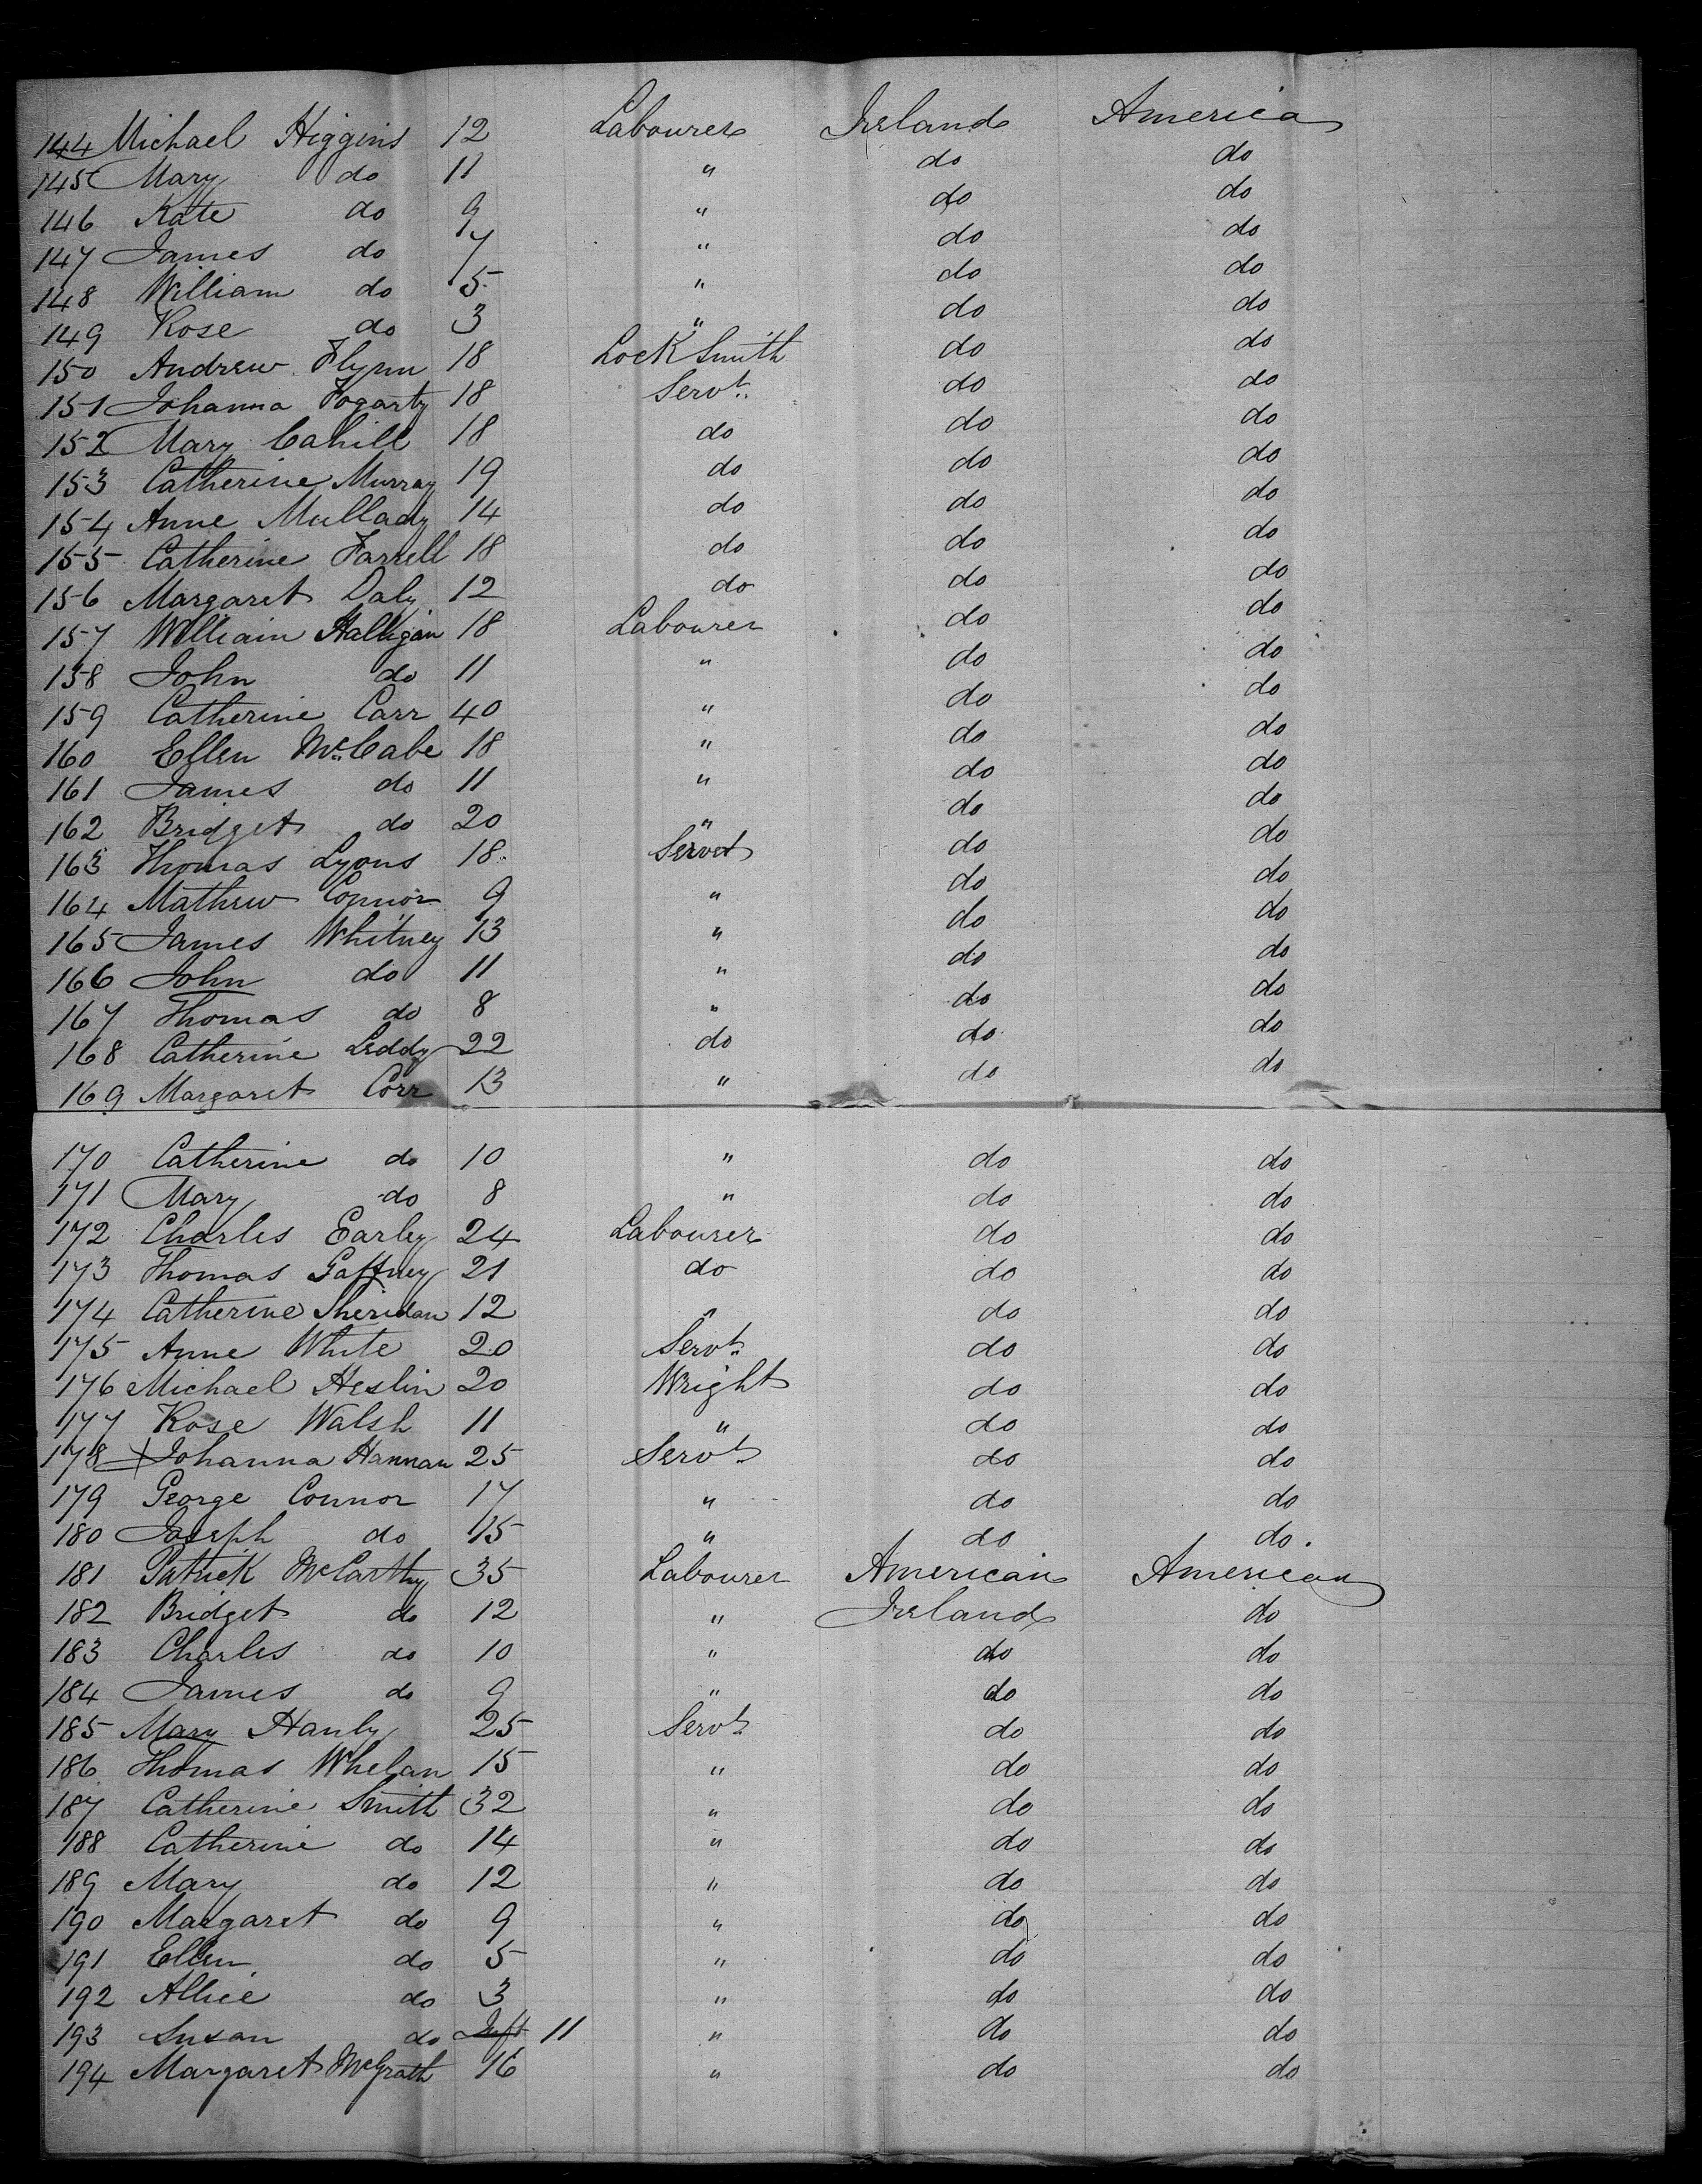 144 Michael Higgins 12 Labourer Ireland America
145 Mary do 11 " do do
146 Kate do 9 " do do
147 James do 7 " do do
148 William do 5 " do do
149 Rose do 3 " do do
150 Andrew Flynn 18 Lock Smith do do
151 Johanna Fogarty 18 Servt do do
152 Mary Cahill 18 do do do
153 Catherine Murray 19 do do do
154 Anne Mullady 14 do do do
155 Catherine Farrell 18 do do do
156 Margaret Daly 12 do do do
157 William Halligan 18 Labourer do do
158 John do 11 " do do
159 Catherine Carr 40 " do do
160 Ellen McCabe 18 " do do
161 James do 11 " do do
162 Bridget do 20 " do do
163 Thomas Lyons 18 Servt do do
164 Mathew Connor 9 " do do
165 James Whitney 13 " do do
166 John do 11 " do do
167 Thomas do 8 " do do
168 Catherine Leddy 22 do do do
169 Margaret Corr 13 " do do
170 Catherine do 10 " do do
171 Mary do 8 " do do
172 Charles Earley 24 Labourer do do
173 Thomas Gaffney 21 do do do
174 Catherine Sheridan 12 " do do
175 Anne White 20 Servt do do
176 Michael Heslin 20 Wright do do
177 Rose Walsh 11 " do do
178 Johanna Hannan 25 Servt do do
179 George Connor 17 " do do
180 Joseph do 15 " do do.
181 Patrick McCarthy 35 Labourer American American
182 Bridget do 12 " Ireland do
183 Charles do 10 " do do
184 James do 9 " do do
185 Mary Hanly 25 Servt do do
186 Thomas Whelan 15 " do do
187 Catherine Smith 32 " do do
188 Catherine do 14 " do do
189 Mary do 12 " do do
190 Margaret do 9 " do do
191 Ellen do 5 " do do
192 Allice do 3 " do do
193 Susan do Inft 11 " do do
194 Margaret McGrath 16 " do do